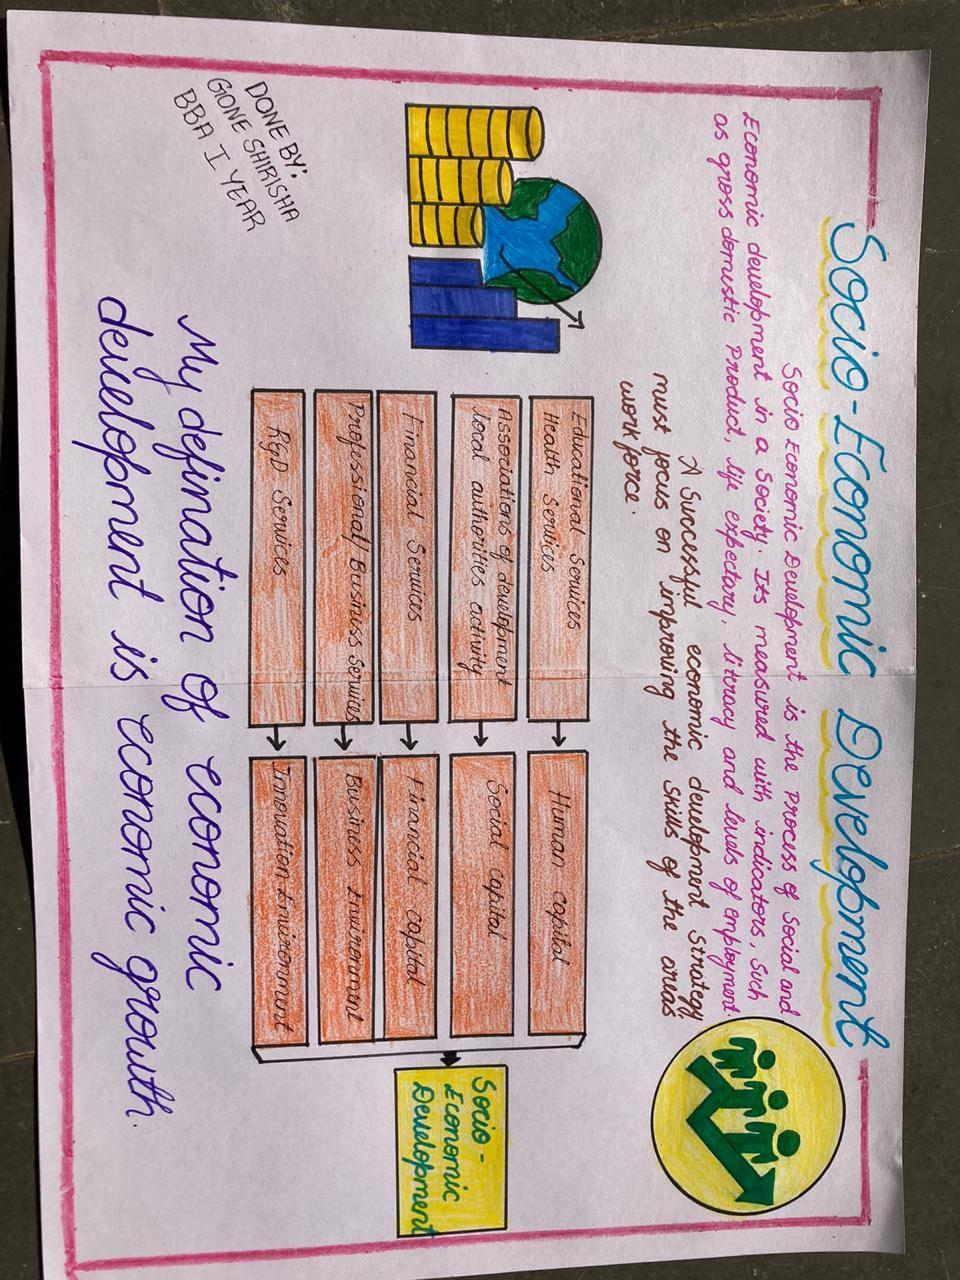 Socio-Economic Development
Socio Economic Development is the Process of Social and
Economic development in a Society. Its measured with indicators, such
as gross domestic Product, life expectary, literacy and levels of employment.
A Successful economic development Strategy
must focus on improving the skills of the areas
work force.
Educational Services
Health Services
Human capital
Associations of development
local authorities activity
Social capital
Financial Services
Financial capital
Professional/Business Services
Business Environment
R&D Services
Innovation Environment
Socio-
Economic
Development
My defination of economic
development is economic growth.
DONE BY:
GONE SHIRISHA
BBA I YEAR